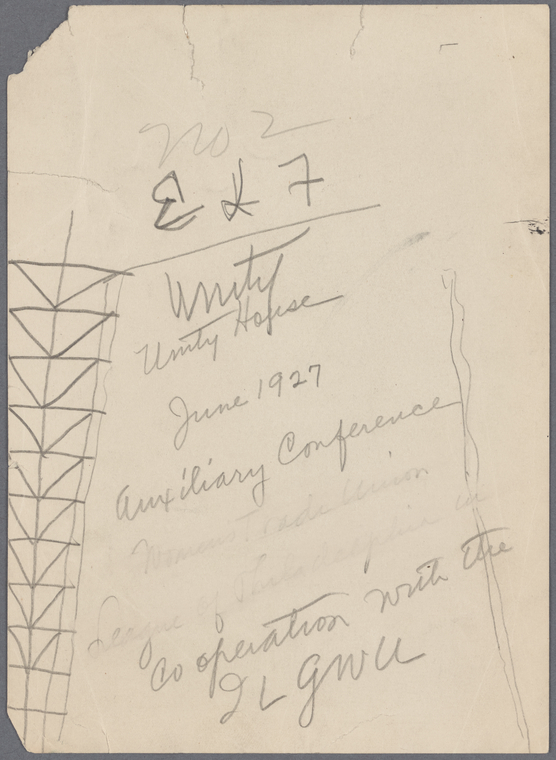 No 2
E K F
Unity
Unity House
June 1927
Auxiliary Conference
Womens Trade Union
League of Philadelphia in
Cooperation with the
ILGWU